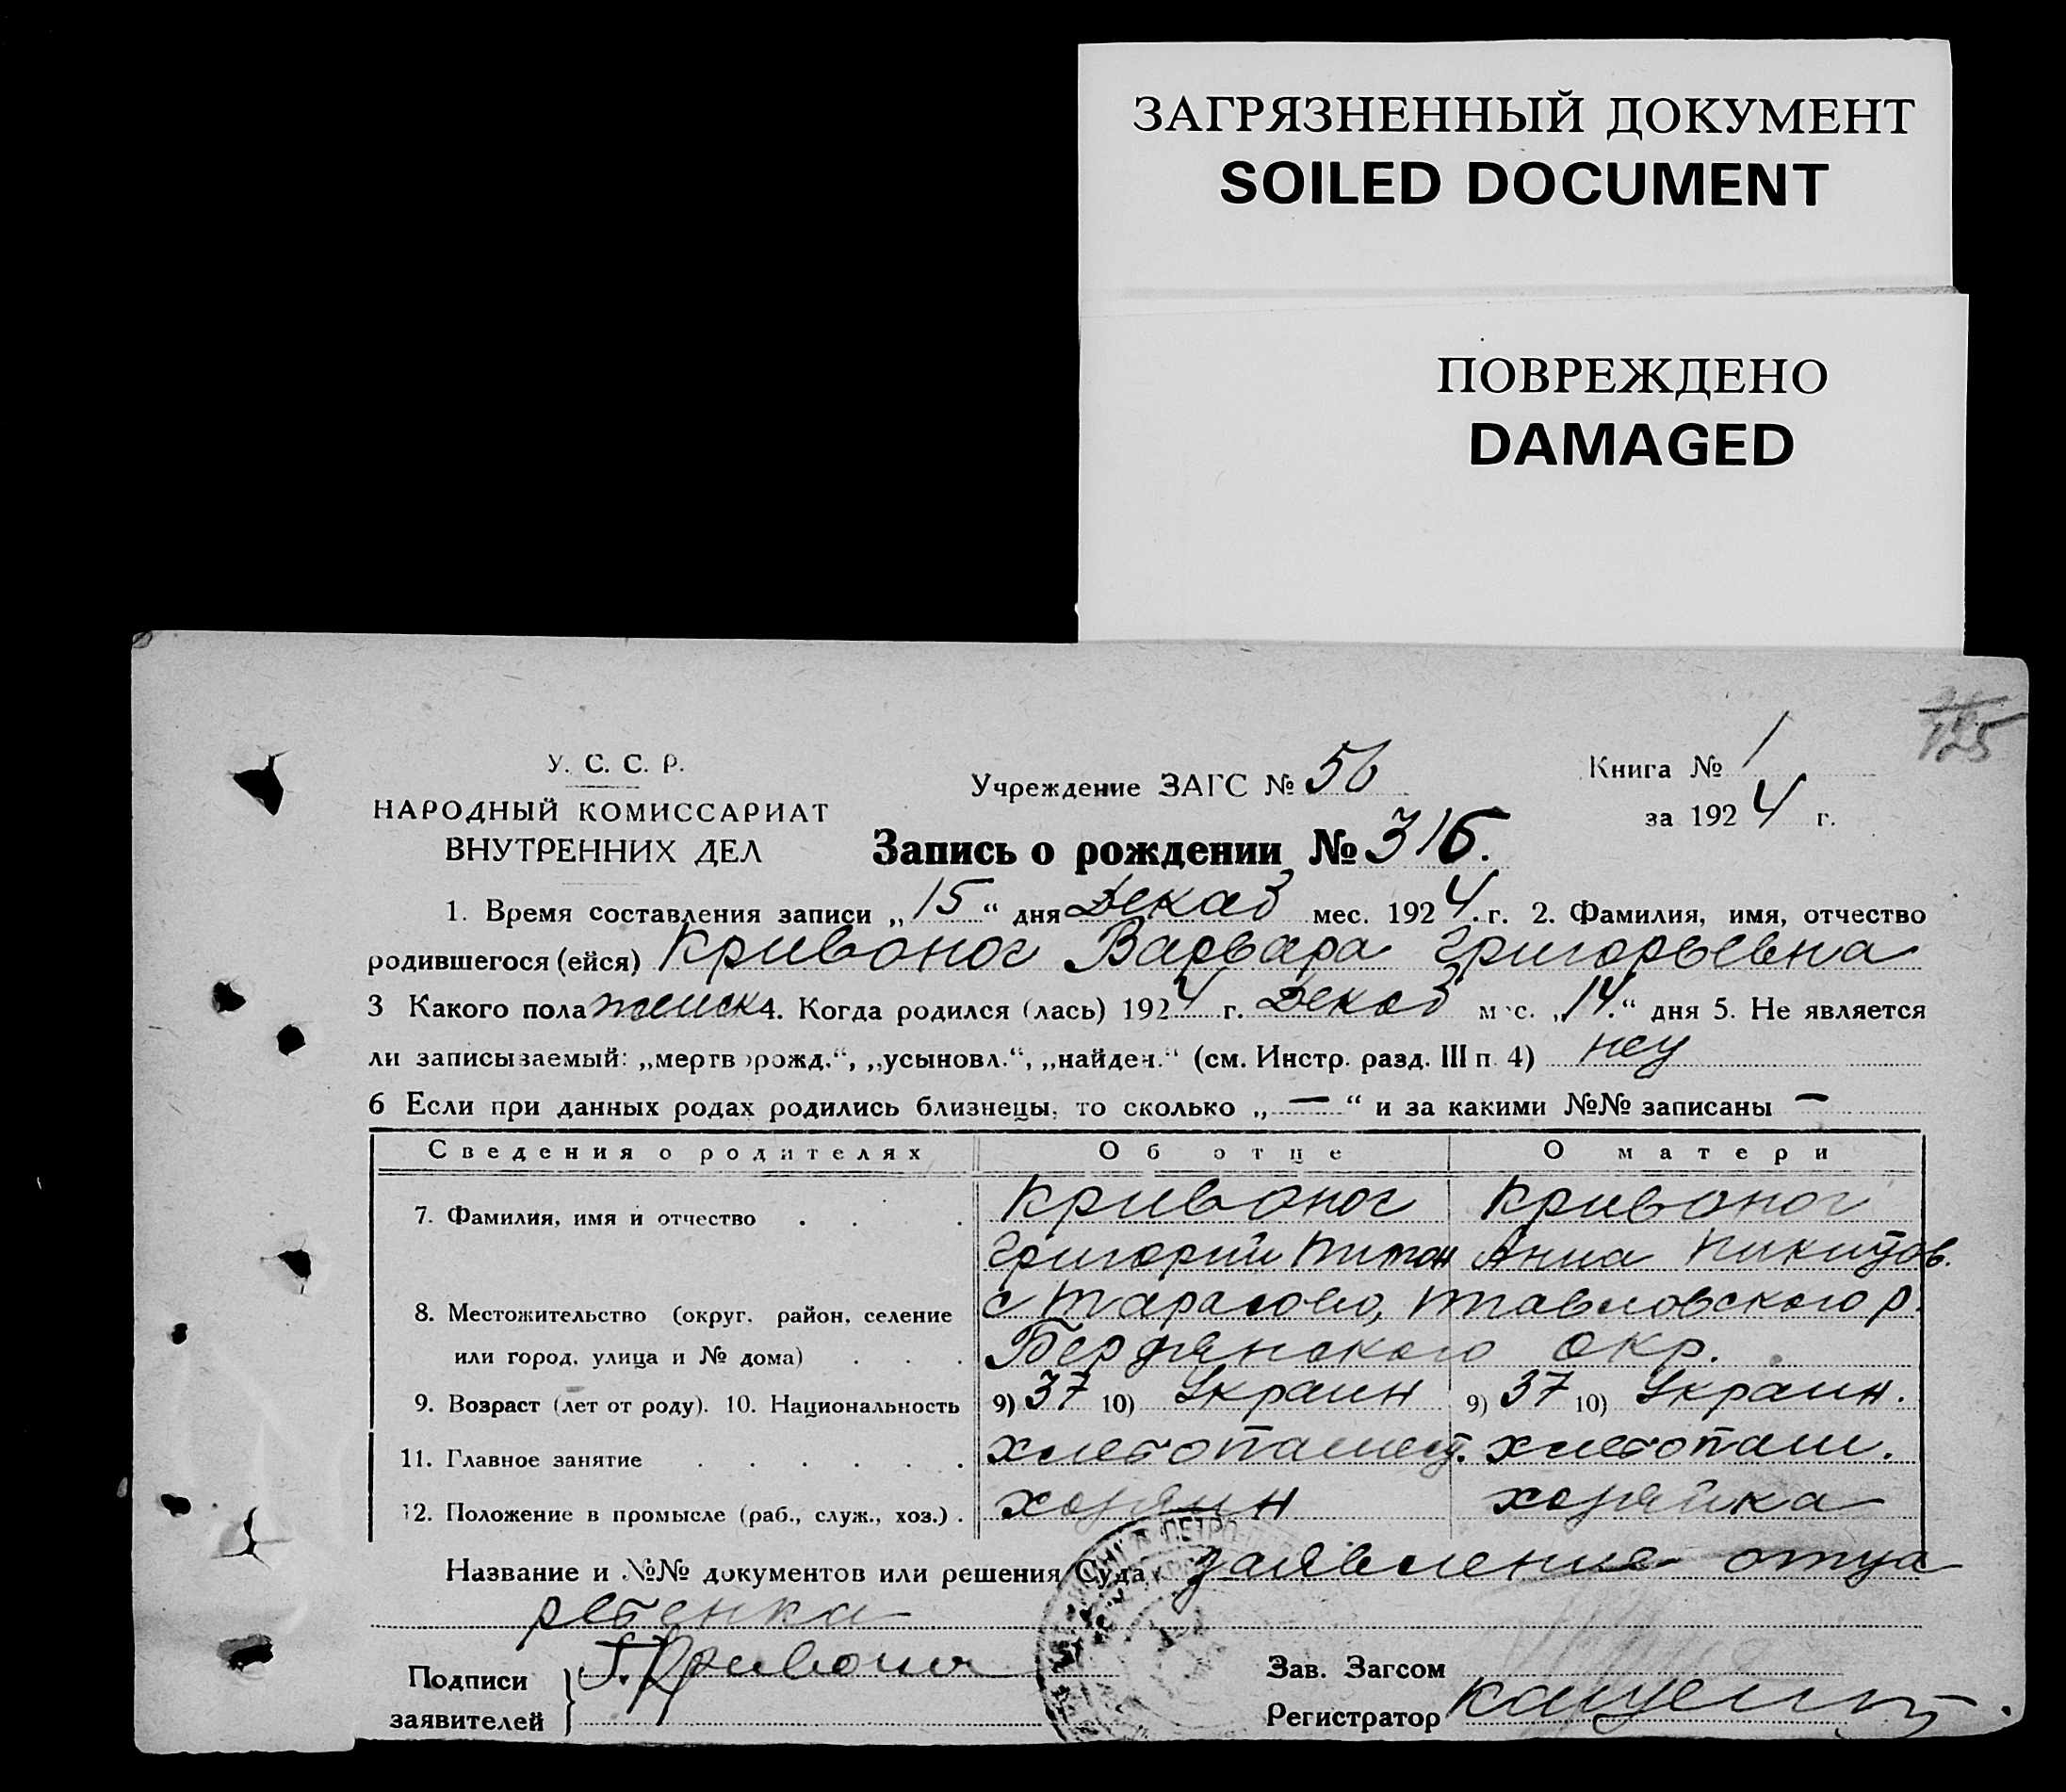 ЗАГРЯЗНЕННЫЙ ДОКУМЕНТ
SOILED DOCUMENT
ПОВРЕЖДЕНО
DAMAGED
125
У. С. С. Р.
НАРОДНЫЙ КОМИССАРИАТ
ВНУТРЕННИХ ДЕЛ
Учреждение ЗАГС № 56
Книга № 1
за 1924 г.
Запись о рождении № 316.
1. Время составления записи „15“ дня Декаб мес. 1924 г. 2. Фамилия, имя, отчество
родившегося (ейся) Кривонос Варвара Григорьевна
3 Какого пола женск 4. Когда родился (лась) 1924 г. Декаб мес. „14.“ дня 5. Не является
ли записываемый: „мертворожд.“, „усыновл.“, „найден.“ (см. Инстр. разд. III п. 4) нет
6 Если при данных родах родились близнецы, то сколько „—“ и за какими №№ записаны —
Сведения о родителях Об отце О матери
7. Фамилия, имя и отчество Кривонос Кривонос
Григорий Анна Никитов.
8. Местожительство (округ, район, селение с Тарасово, р.
или город, улица и № дома) Бердянского окр.
9. Возраст (лет от роду). 10. Национальность 9) 37 10) Украин 9) 37 10) Украин.
11. Главное занятие хлебопашест. хлебопаш.
12. Положение в промысле (раб., служ., хоз.) хозяин хозяйка
Название и №№ документов или решения Суда заявление отца
ребенка
Подписи
заявителей
Г. Кривонос
Зав. Загсом
Регистратор